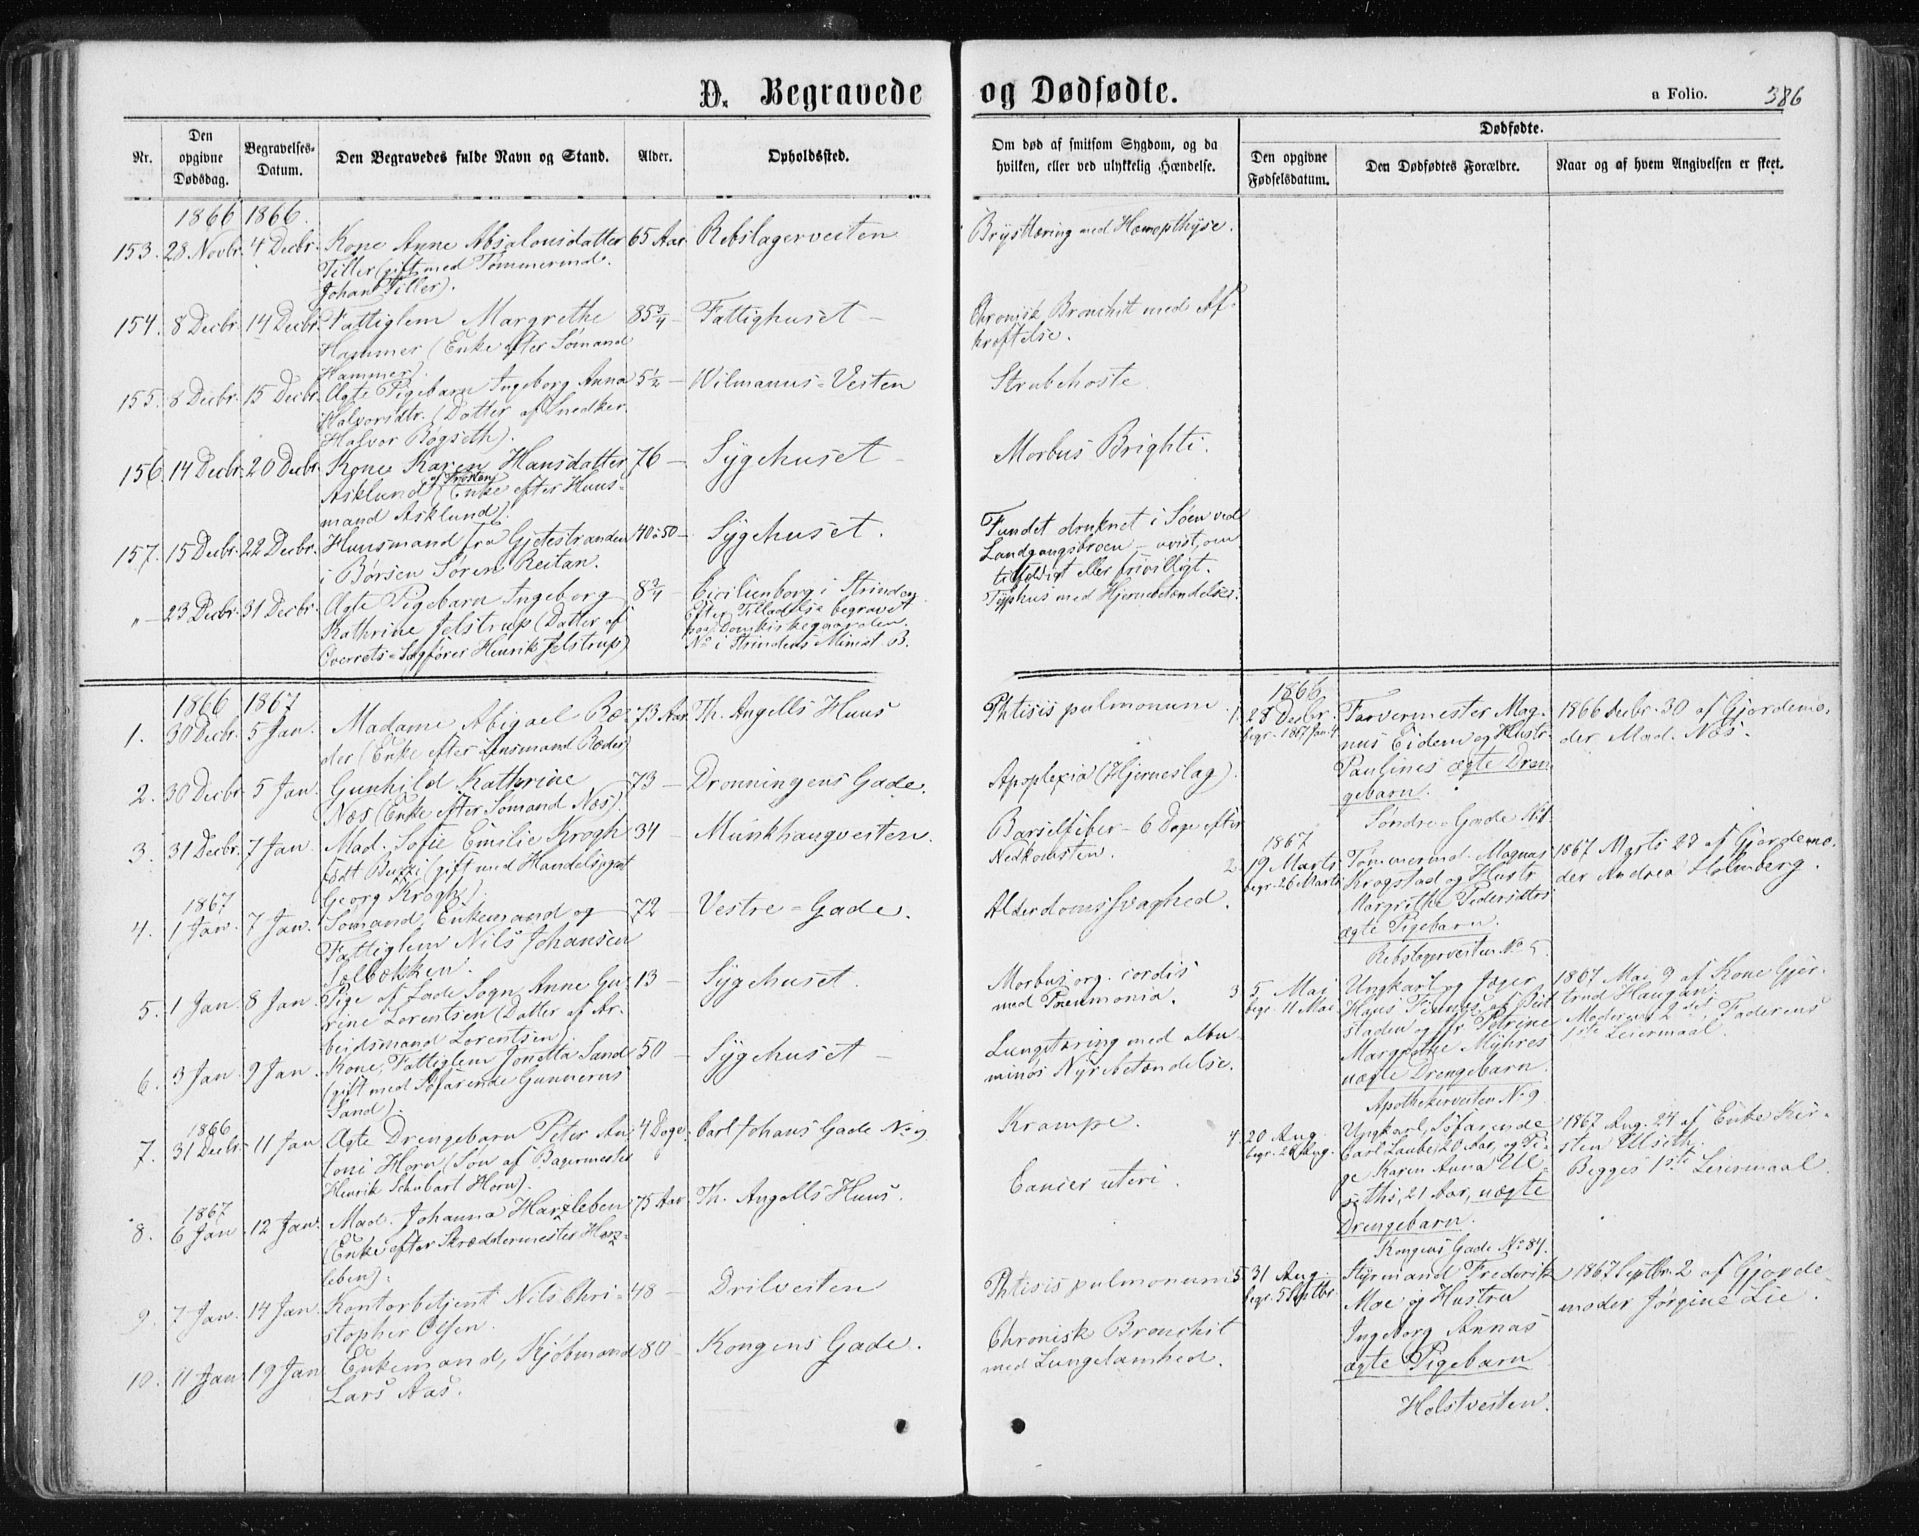 D. Begravede og Dødfødte.
a Folio. 386
Nr.
Den opgivne Dødsdag.
Begravelses-Datum.
Den Begravedes fulde Navn og Stand.
Alder.
Opholdssted.
Om død af smitsom Sygdom, og da
hvilken, eller ved ulykkelig Hændelse.
Dødfødte.
Den opgivne Fødselsdatum.
Den Dødfødtes Forældre.
Naar og af hvem Angivelsen er skeet.
1866 1866.
153. 28 Novbr. 4 Decbr. Kone Anne Absalonsdatter 65 Aar Rebslagerveiten Brysttæring med Hæmopthyse.
Tiller (gift med Tømmermd.
Johan Tiller).
154. 8 Decbr. 14 Decbr. Fattiglem Margrethe 85 3/4 — Fattighuset — Chronisk Bronchit med Af-
Hammer (Enke efter Sømand kræftelse.
Hammer).
155. 8 Decbr. 15 Decbr. Ægte Pigebarn Ingeborg Anna 5 1/2 — Wilmanns-Veiten Strubehoste.
Halvorsdtr. (Datter af Snedker
Halvor Bøgseth).
156. 14 Decbr. 20 Decbr. Kone Karen Hansdatter 76 — Sygehuset — Morbus Brighti.
Asklund af Frosten (Enke efter Huus-
mand Asklund).
157. 15 Decbr. 22 Decbr. Huusmand fra Gjetestranden 40 à 50 — Sygehuset. Fundet druknet i Søen ved
i Børsen Søren Reitan. Landgangsbroen — uvist, om
tilfældigt eller frivilligt.
" — 23 Decbr. 31 Decbr. Ægte Pigebarn Ingeborg 8 3/4 — Cicilienborg i Strinden Typhus med Hjernebetændelse.
Kathrine Jelstrup (Datter af Efter Tilladelse begravet
Overrets-Sagfører Henrik Jelstrup) paa Domkirkegaarden.
No i Strindens Minist B.
1866 1867
1. 30 Decbr. 5 Jan. Madame Abigael Ræ- 73 Aar Th. Angells Huus Phtisis pulmonum.
der (Enke efter Lensmand Ræder)
2. 30 Decbr. 5 Jan. Gunhild Kathrine 73 — Dronningens Gade. Apoplexia (Hjerneslag).
Næs (Enke efter Sømand Næs).
3. 31 Decbr. 7 Jan. Mad. Sofie Emilie Krogh 34 — Munkhaugveiten. Barselfeber — 6 Dage efter
født Buzzi (gift med Handelsagent Nedkomsten.
Georg Krogh).
1867
4. 1 Jan. 7 Jan. Sømand, Enkemand og 72 — Vestre-Gade. Alderdomssvaghed.
Fattiglem Nils Johansen
5. 1 Jan. 8 Jan. Pige af Lade Sogn, Anne Gu- 13 — Sygehuset. Morbus org. cordis
rine Lorentsen (Datter af Ar- med Pneumonia.
beidsmand Lorentsen).
6. 3 Jan. 9 Jan. Kone, Fattiglem Jonetta Sand 50 — Sygehuset — Lungetæring med albu-
(gift med Søfarende Gunnerus minøs Nyrebetændelse.
Sand).
1866
7. 31 Decbr. 11 Jan. Ægte Drengebarn Peter An- 4 Dage Carl Johans Gade No 9 Krampe.
toni Horn (Søn af Bagermester
Henrik Schubart Horn).
1867
8. 6 Jan. 12 Jan. Mad. Johanna Harzleben 75 Aar Th. Angells Huus. Cancer uteri.
(Enke efter Skræddermester Harz-
leben).
9. 7 Jan. 14 Jan. Kontorbetjent Nils Chri- 48 — Drilveiten Phtisis pulmonum
stopher Olsen.
10. 11 Jan. 19 Jan. Enkemand, Kjøbmand 80 — Kongens Gade. Chronisk Bronchit
Lars Aas. med Lungelamhed.
1866.
1. 28 Decbr. Farvermester Mag- 1866 Decbr. 30 af Gjordemo-
begr. 1867 Jan. 4 nus Eidem og Hustr. der Mad. Næs.
Paulines ægte Dren-
gebarn.
Søndre Gade
1867
2. 19 Marts Tømmermd. Magnus 1867 Marts 23 af Gjordemo-
begr. 26 Marts Krogstad og Hustr. der Andrea Holmberg.
Margrethe Pedersdtrs
ægte Pigebarn.
Rebslagerveiten No 5.
3. 5 Mai Ungkarl og Jæger 1867 Mai 9 af Kone Gjer-
begr. 11 Mai Hans af Beit- trud Haugan.
staden og Petrine Moderens 2det, Faderens
Margrethe Myhres 1ste Leiermaal.
uægte Drengebarn.
Apothekerveiten No 9.
4. 20 Aug. Ungkarl, Søfarende 1867 Aug. 24 af Enke Kir-
begr. Aug. Carl Laube, 20 Aar, og Pi- sten Ulseth.
ge Karen Anna Ul- Begges 1ste Leiermaal.
seths, 21 Aar, uægte
Drengebarn.
Kongens Gade No 84.
5. 31 Aug. Styrmand Frederik 1867 Septbr. 2 af Gjorde-
begr. 5 Septbr. Moe og Hustru moder Jørgine Lie.
Ingeborg Annas
ægte Pigebarn
Holstveiten.